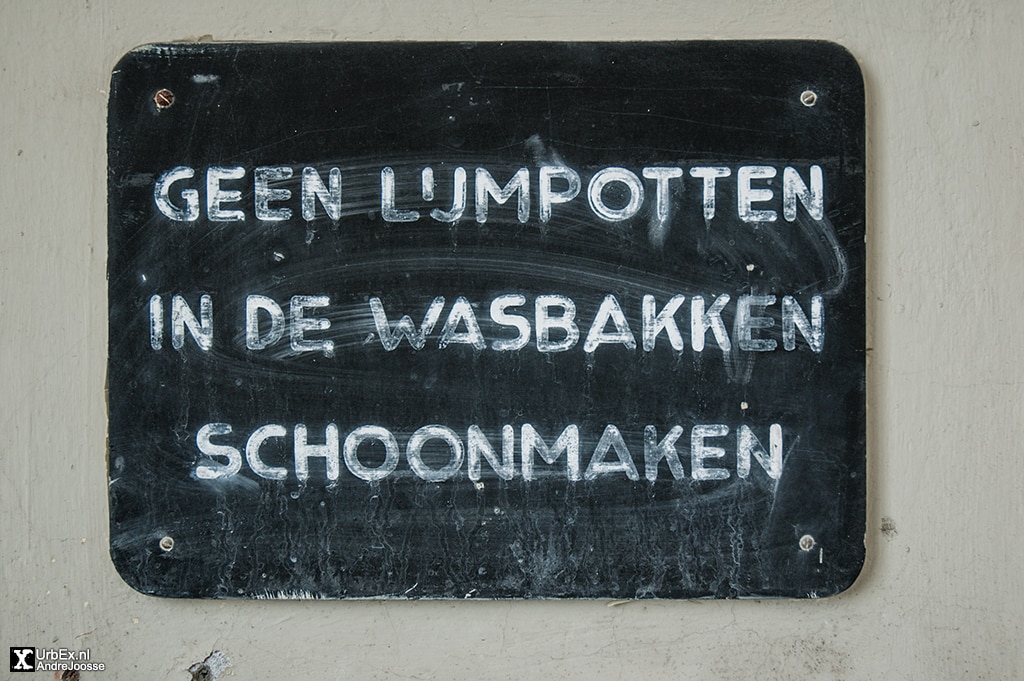 GEEN LIJMPOTTEN
IN DE WASBAKKEN
SCHOONMAKEN
X UrbEx.nl
AndreJoosse